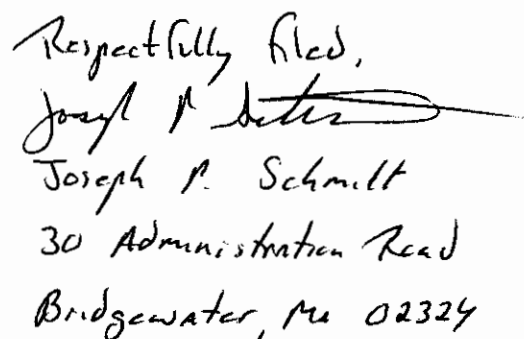 Respectfully filed,
Joseph P.
Joseph P. Schmitt
30 Administration Road
Bridgewater, Ma 02324